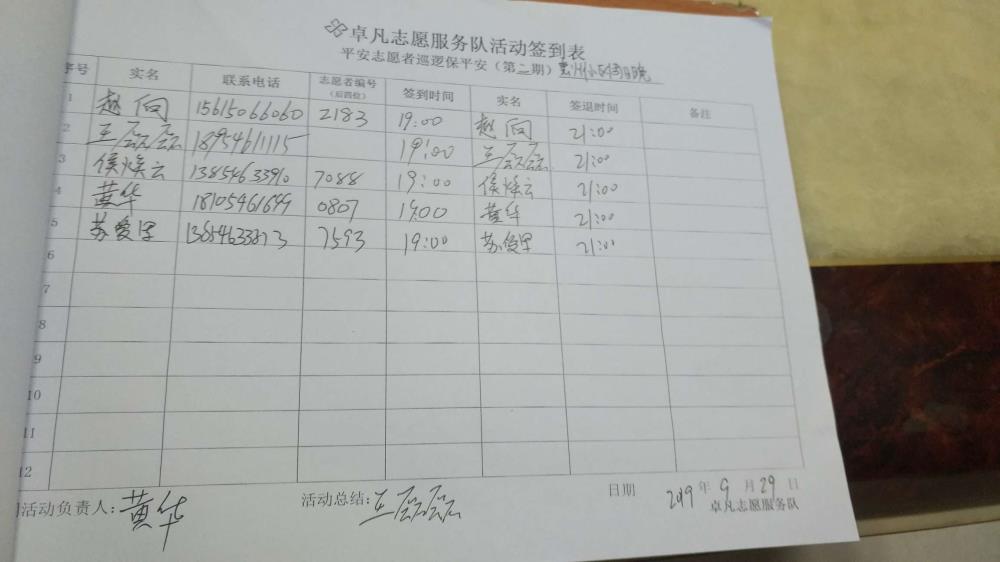 卓凡志愿服务队活动签到表
平安志愿者巡逻保平安（第二期）
序号 实名 联系电话 志愿者编号（后四位） 签到时间 实名 签退时间 备注
1 赵向 15615066060 2183 19:00 赵向 21:00
2 王磊磊 18954611115 19:00 王磊磊 21:00
3 侯焕云 13854633910 7088 19:00 侯焕云 21:00
4 黄华 18105461699 0807 19:00 黄华 21:00
5 苏爱 7593 19:00 苏爱 21:00
6
7
8
9
10
11
12
活动负责人：黄华 活动总结：王磊磊 日期 2019年9月29日
卓凡志愿服务队